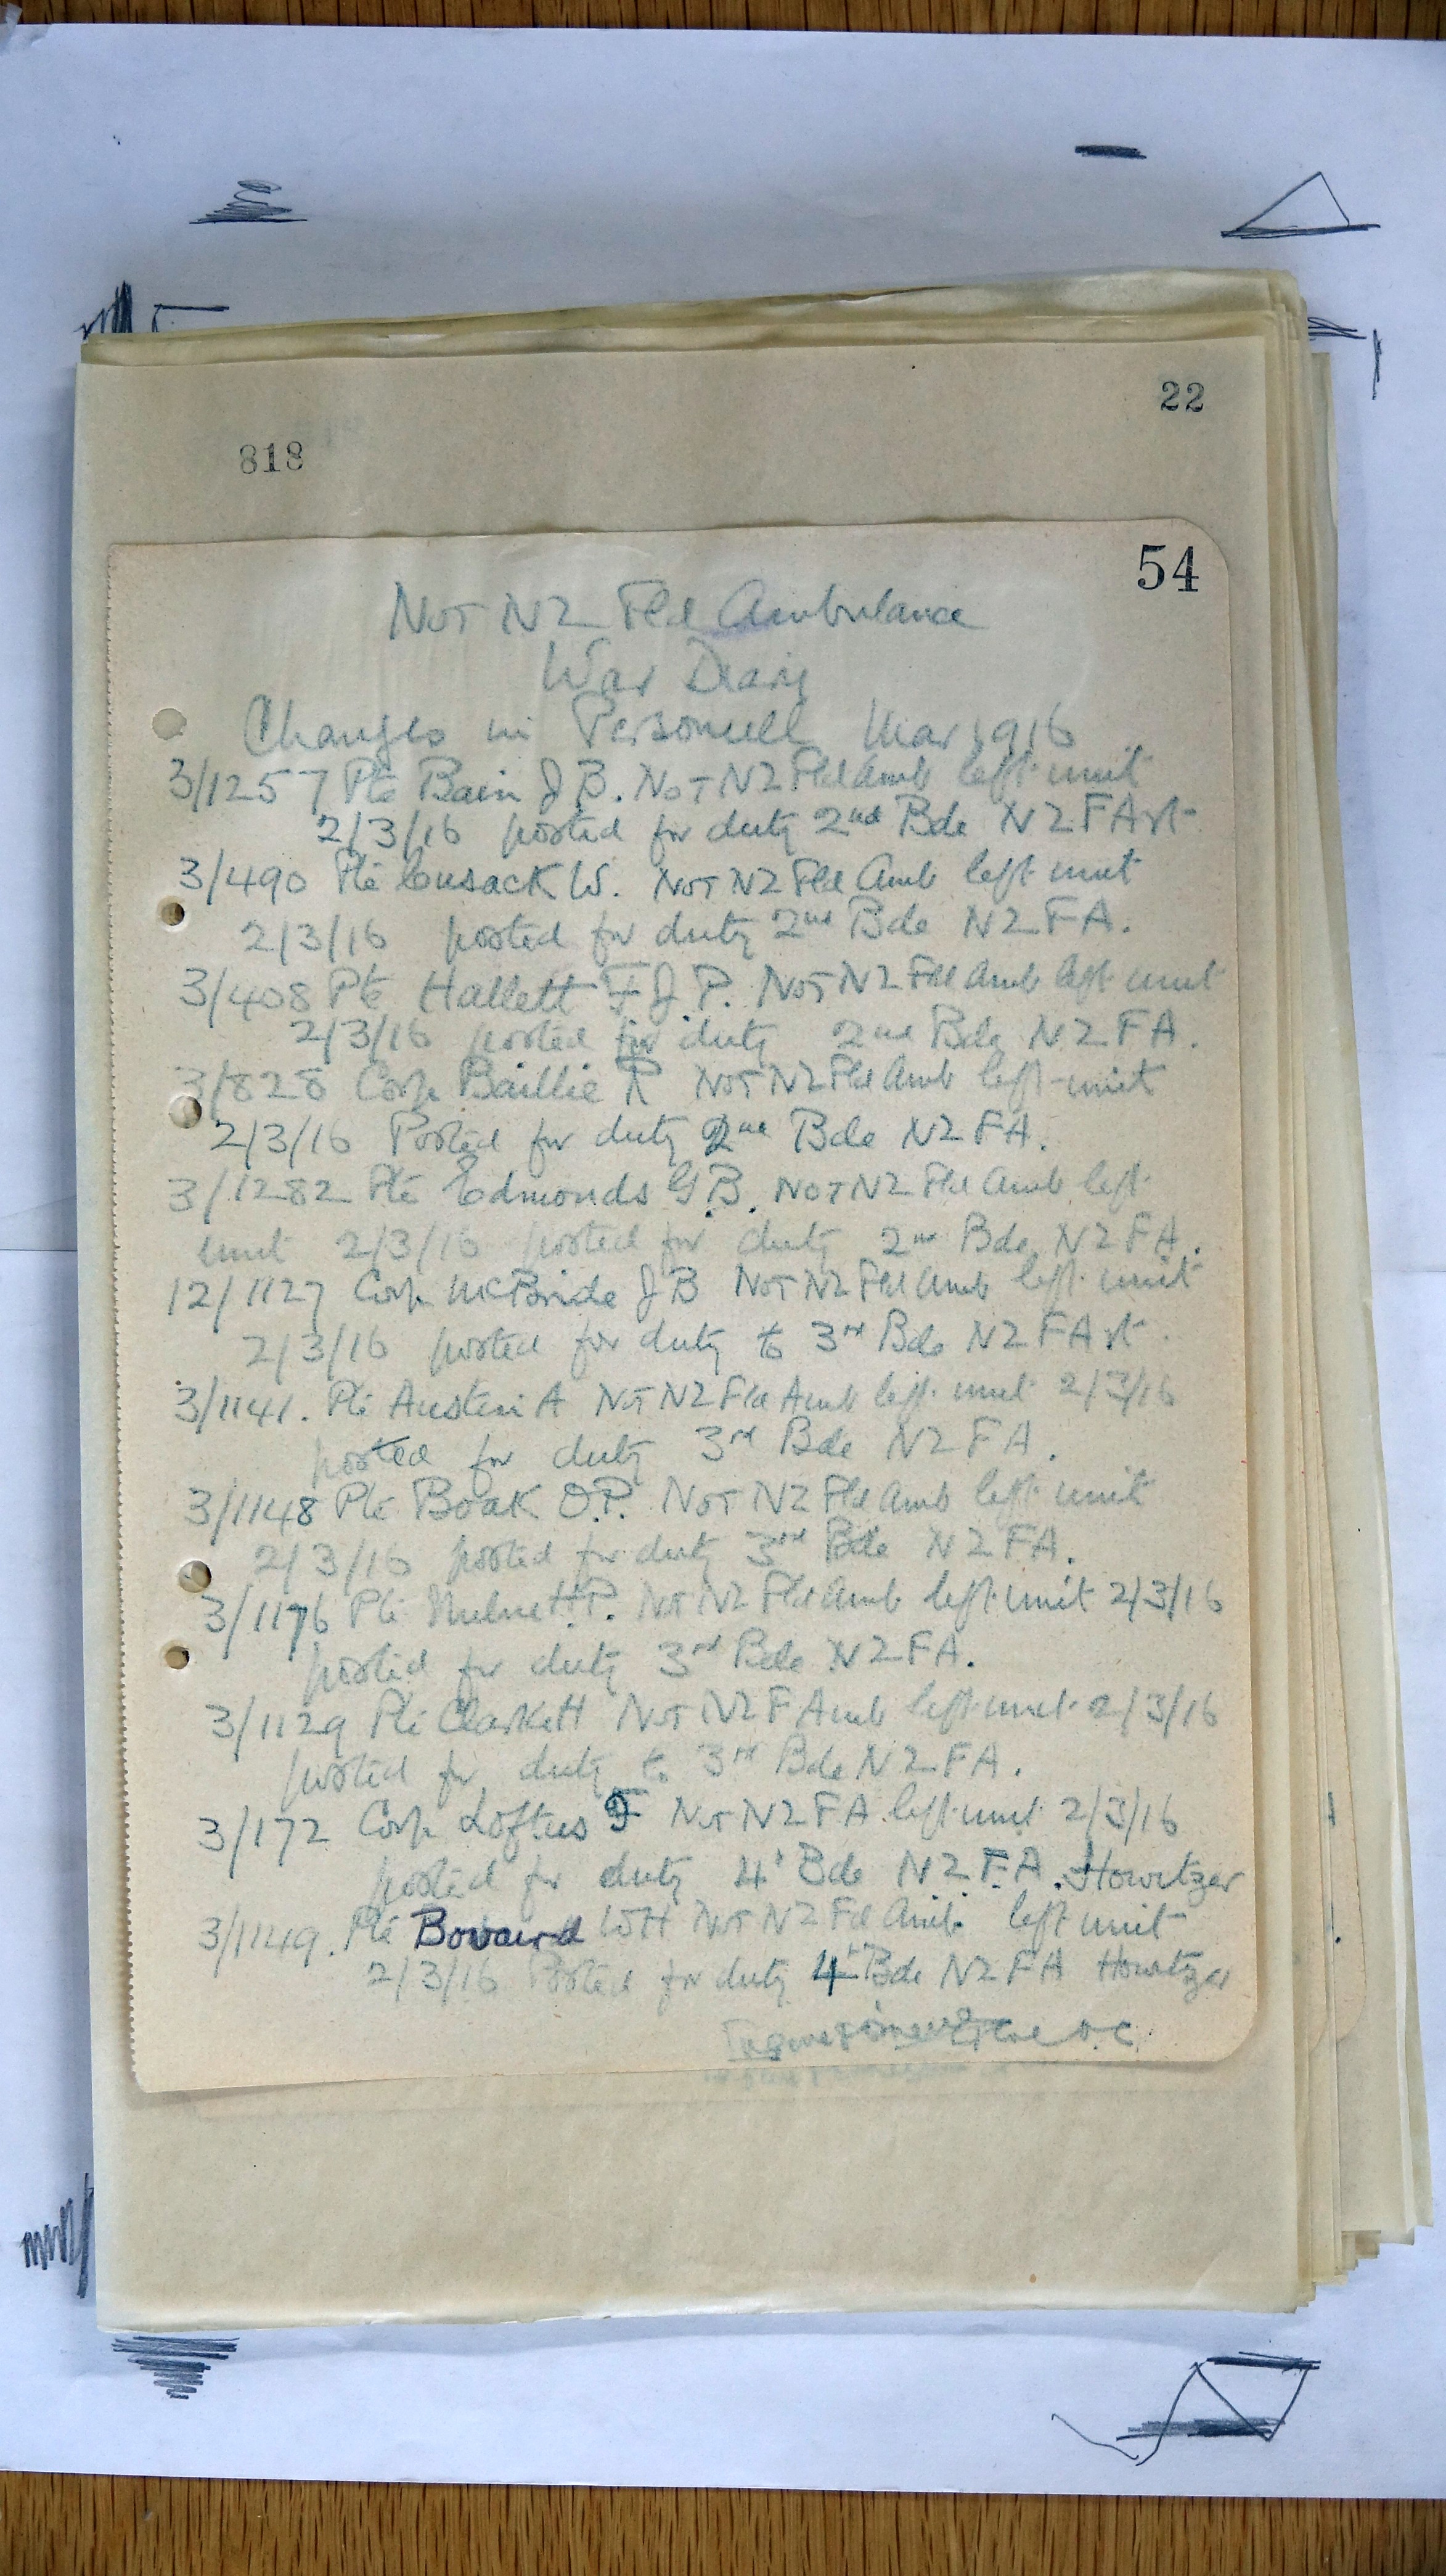 22
818
54
No 1 NZ Fld Ambulance
War Diary
Changes in Personnell Mar 1916
3/1257 Pte Bain J B. No 1 NZ Fld Amb left unit
2/3/16 posted for duty 2nd Bde NZ FArt
3/490 Pte Cusack W. No 1 NZ Fld Amb left unit
2/3/16 posted for duty 2nd Bde NZ FA.
3/408 Pte Hallett F J P. No 1 NZ Fld Amb left unit
2/3/16 posted for duty 2nd Bde NZ FA.
3/828 Corp Baillie R No 1 NZ Fld Amb left unit
2/3/16 Posted for duty 2nd Bde NZ FA.
3/1282 Pte Edmonds G.B. No 1 NZ Fld Amb left
unit 2/3/16 posted for duty 2nd Bde NZ FA.
12/1127 Corp McBride J B No 1 NZ Fld Amb left unit
2/3/16 posted for duty to 3rd Bde NZ FArt.
3/1141. Pte Austin A No 1 NZ Fld Amb left unit 2/3/16
posted for duty 3rd Bde NZ FA.
3/1148 Pte Boak O.P. No 1 NZ Fld Amb left unit
2/3/16 posted for duty 3rd Bde NZ FA.
3/1176 Pte H.P. No 1 NZ Fld Amb left unit 2/3/16
posted for duty 3rd Bde NZ FA.
3/1129 Pte No 1 NZ F Amb left unit 2/3/16
posted for duty to 3rd Bde NZ FA.
3/172 Corp Loftus F No 1 NZ FA left unit 2/3/16
posted for duty 4 Bde NZ FA. Howitzer
3/1149. Pte Bovaird WH No 1 NZ Fd Amb. left unit
2/3/16 Posted for duty 4 Bde NZ FA Howitzer
O.C.